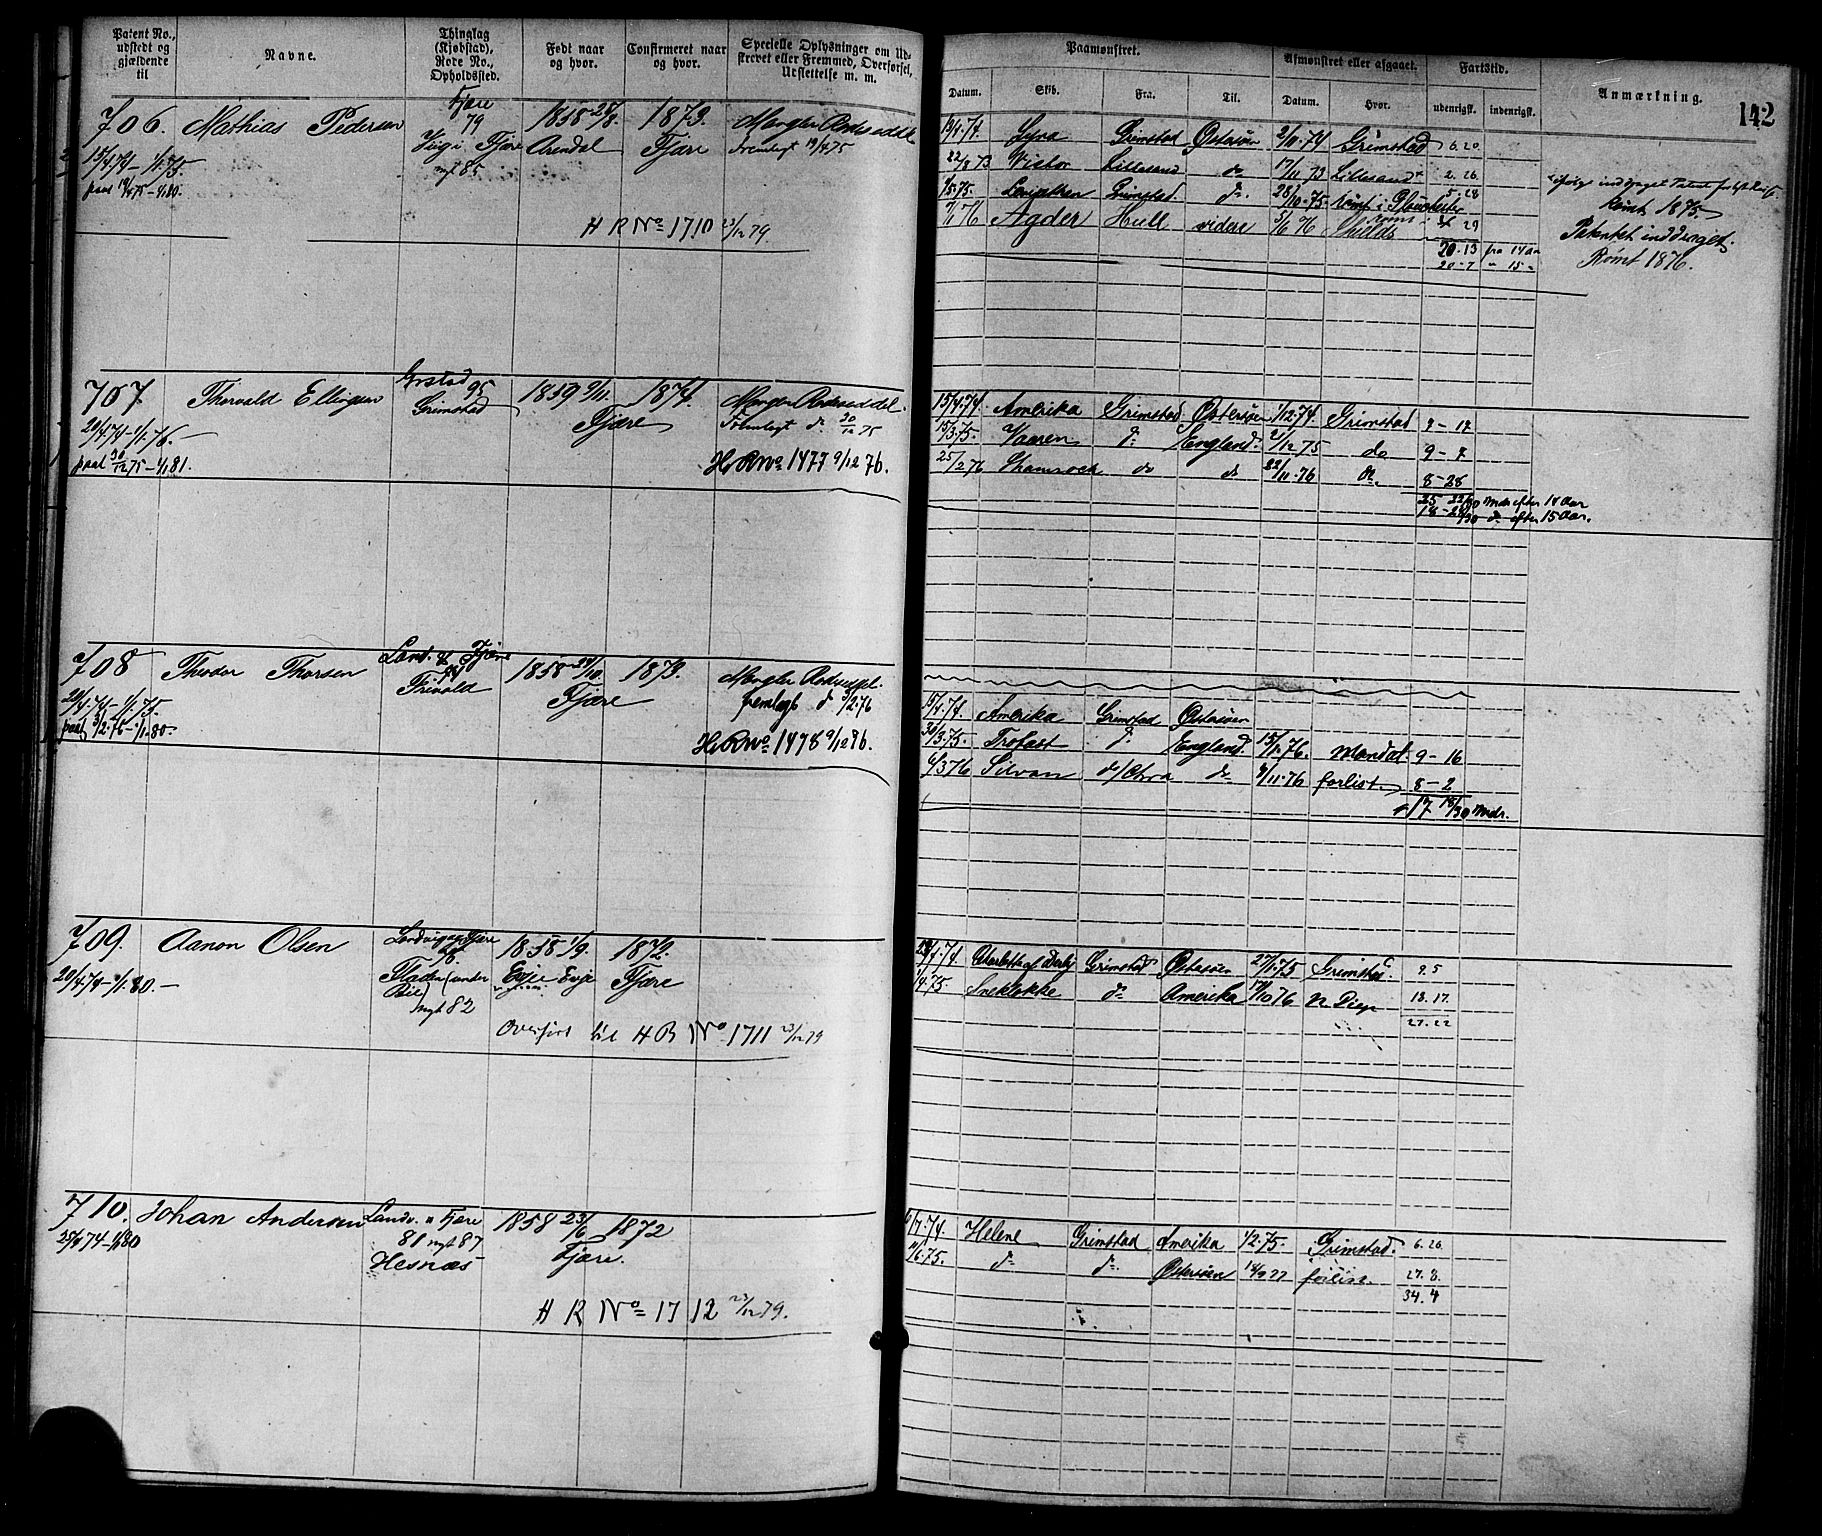 Patent No., udstedt og gjældende til
Navne.
Thinglag (Kjøbstad), Rode No., Opholdssted.
Født naar og hvor.
Confirmeret naar og hvor.
Specielle Oplysninger om Udskrevet eller Fremmed, Overførsel, Udslettelse m. m.
706. Mathias Pedersen
Fjære
79
1858 25/8. 1873. Mangler Rodeseddel
Viig i Fjære Arendal Fjære Fremlagt 19/4 75
15/4 74 – 1/1.75.
nyt 85
paat 19/4 75 – 1/1 80.
H R No 1710 23/12 79.
707 Thorvald Ellingsen
Grimstad
95
1859 9/11. 1874. Mangler Rodeseddel.
Fjære Fremlagt do 30/12 75
20/4 74 – 1/1.76.
paat 30/12 75 – 1/1 81.
H R No 1477 9/12 76.
708 Theodor Thorsen
Landv. & Fjære
Frivold
1858 29/10. 1873. Mangler Rodeseddel.
Fjære fremlagt do 3/2.76
20/4.74 – 1/1.75
paat 3/2.76 – 1/1.80.
H R No 1478 9/12 76.
709. Aanon Olsen
Landvig & Fjære
1858 1/9. 1872.
(under Bie) Evje Evje Fjære
20/4.74 – 1/1.80. –
nyt 82
Overført til H R No 1711 23/12 79
710. Johan Andersen
Landv. & Fjære
81 nyt 87
Hesnæs
1858 23/6 1872
Fjære.
25/4 74 – 1/1 80
H R No 1712 23/12 79.
142
Paamønstret.
Afmønstret eller afgaaet.
Fartstid.
Anmærkning.
Datum. Skib. Fra. Til. Datum. Hvor. udenrigsk. indenrigsk.
Grimstad Østersøen 2/10.74 Grimstad 6.20
22/8 73 Lillesand do 17/11 73 Lillesand 2.26
Grimstad do 28/10.75 rømt i 5.28
Rømt 1875.
7/1 76 Agder Hull videre 5/6 76 Shields rømt 29
Patentet inddraget.
20.13 fra 14 Aar
20.7 " 15 "
Rømt 1876.
15/4.74. Amerika Grimstad Østersøen 1/12.74. Grimstad 9–12
15/3.75. Vaaren do England. 2/12.75 do 9–7
25/2 76 Shamrock do do 22/11.76 do. 8–28
25 22/30 Mdr efter 14 Aar
do efter 15 Aar.
15/4.74. Amerika Grimstad Østersøen
30/3.75. Trofast do England 15/1.76. Mandal. 9–16
Silvan do 11.76 forlist. 8–2
17 18/30 Mdr.
Grimstad Østersøen 27/1.75 Grimstad 9.5
1/4.75. Sneklokke do Amerika 10 76 18.17.
27.22
Helene Grimstad Amerika 1/2 75. Grimstad. 6.26
11/6.75. do do Østersøen forlist. 27.8.
34.4